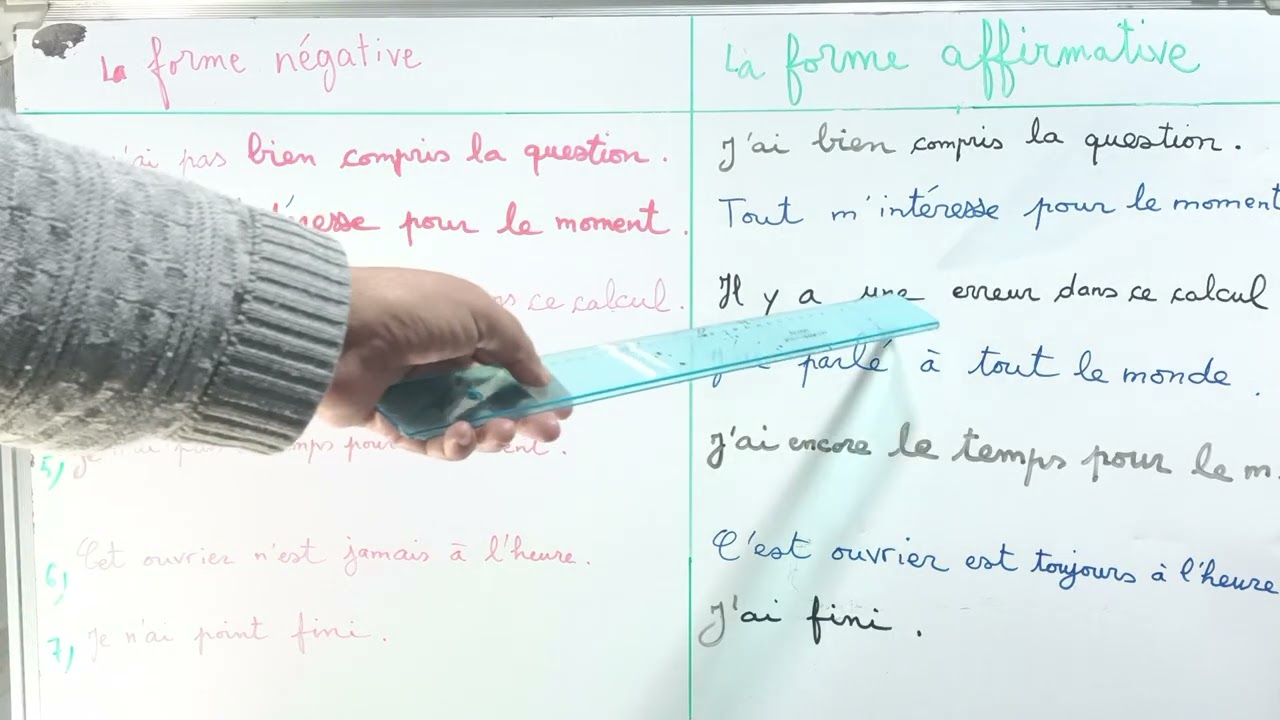 La forme négative
La forme affirmative
pas bien compris la question.
J'ai bien compris la question.
pour le moment.
Tout m'intéresse pour le moment
ce calcul.
Il y a une erreur dans ce calcul
parlé à tout le monde.
5)
J'ai encore le temps pour le m.
6) Cet ouvrier n'est jamais à l'heure.
C'est ouvrier est toujours à l'heure
7) Je n'ai point fini.
J'ai fini.